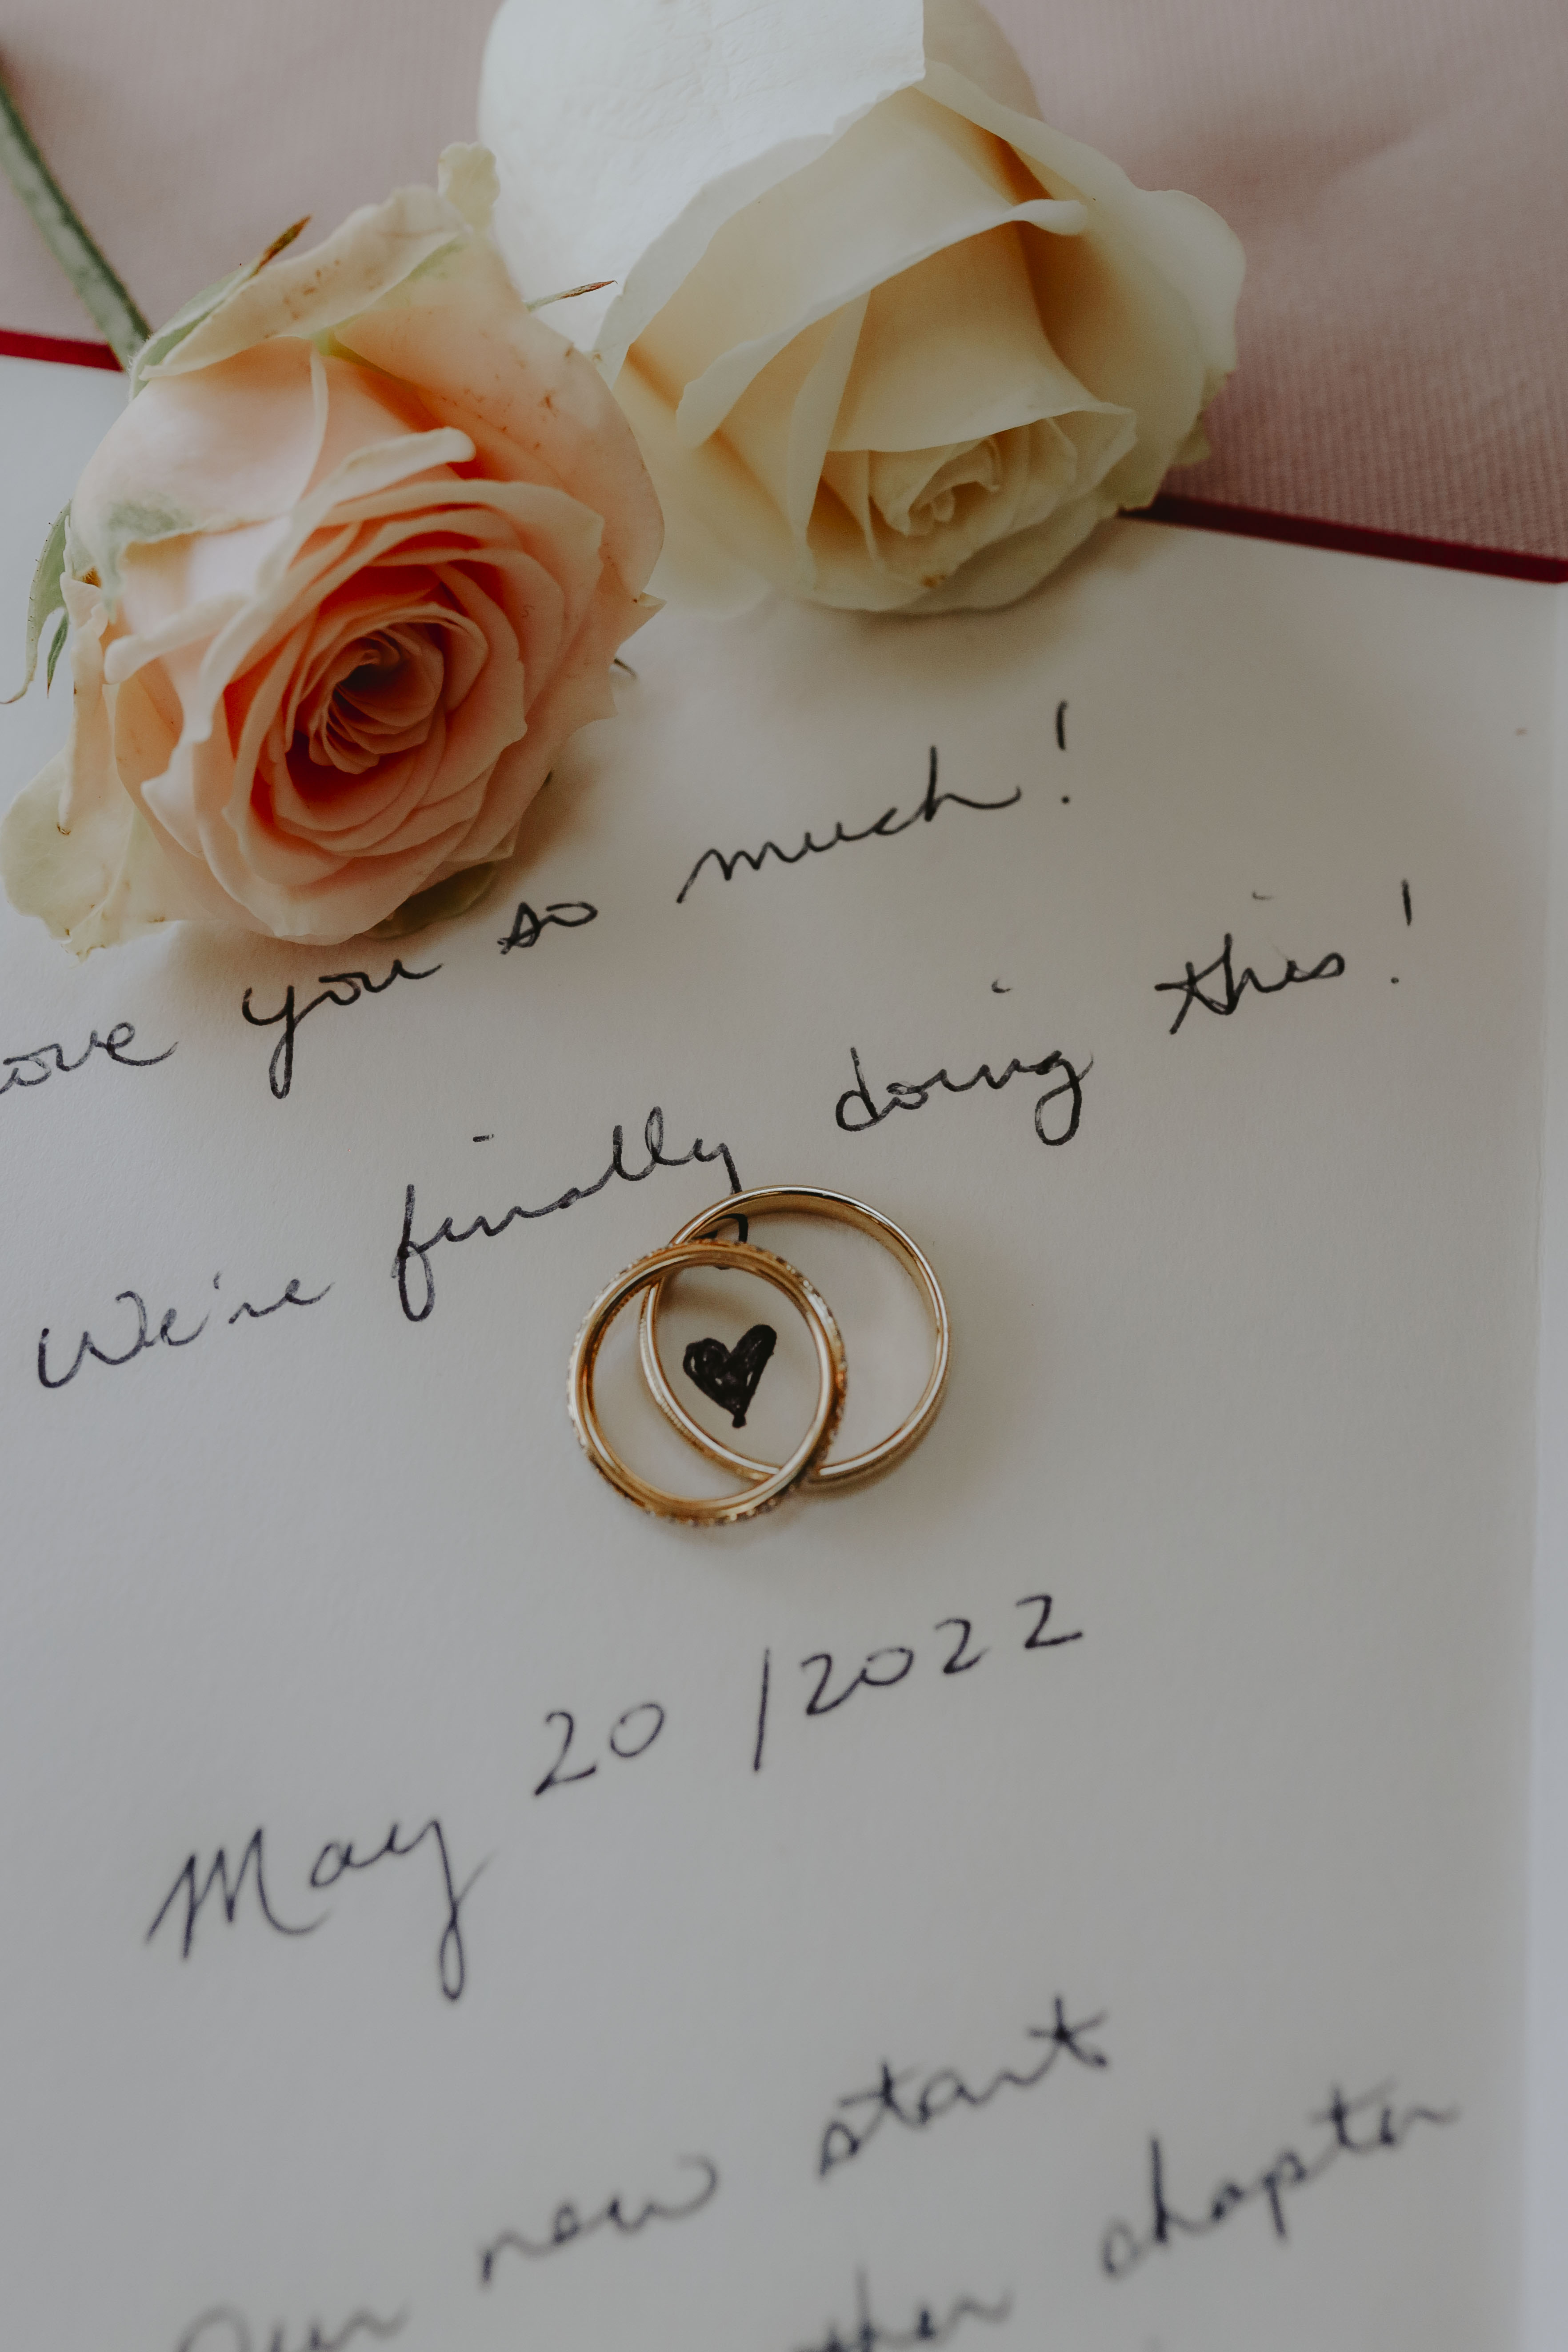 ove you so much!
We're finally doing this!
May 20/2022
Our new start
ther chapter